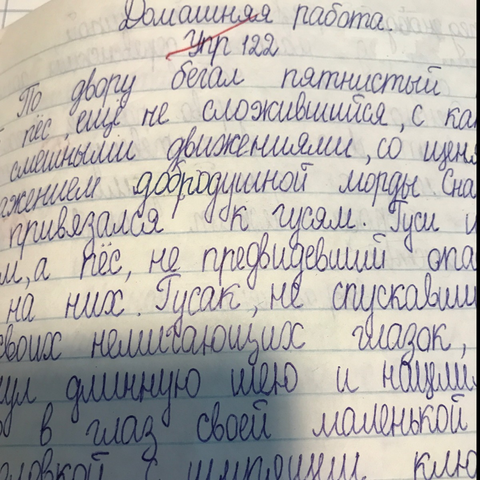 Домашняя работа.
Упр 122
По двору бегал пятнистый
пёс, ещё не сложившийся, с
смешными движениями, со
добродушной морды.
привязался к гусям. Гуси
а пёс, не предвидевший
на них. Гусак, не
своих немигающих глазок,
длинную шею и
в глаз своей маленькой
с